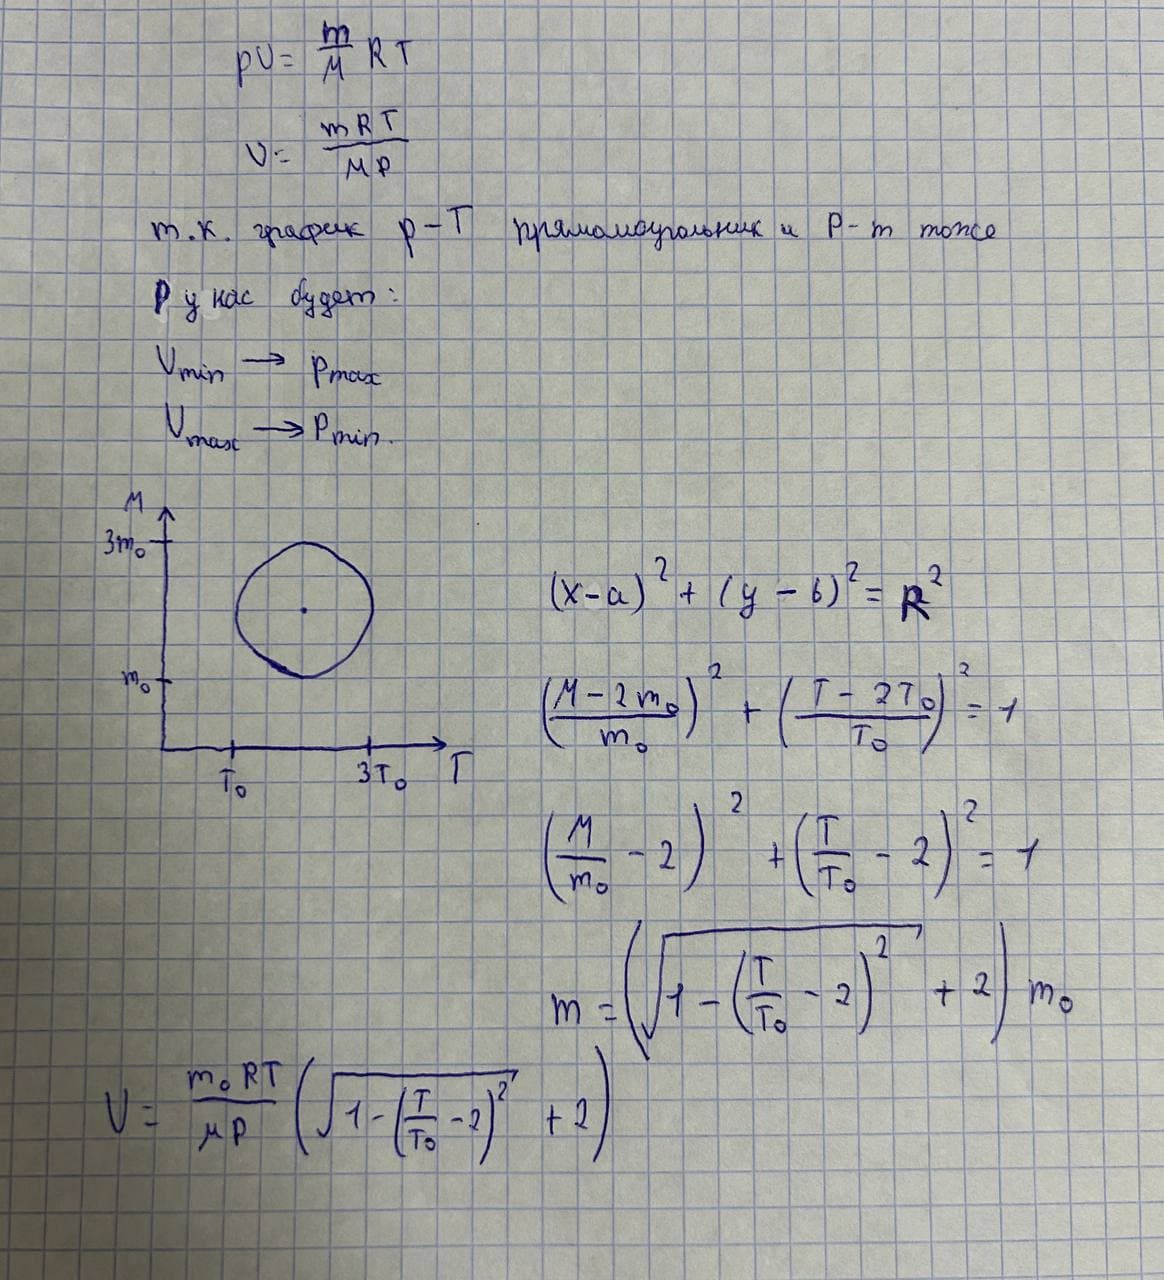 pV = m/М RT
V = mRT/МP
т.к. график p-T прямомоугольник и P-m тоже
P у нас будет:
Vmin → pmax
Vmax → Pmin.
М
3m₀
m₀
T₀
3T₀
T
(x-a)² + (y-b)² = R²
((М-2m₀)/m₀)² + ((T-2T₀)/T₀)² = 1
(М/m₀ - 2)² + (T/T₀ - 2)² = 1
m = (√(1-(T/T₀ - 2)²) + 2) m₀
V = m₀RT/μP (√(1-(T/T₀ - 2)²) + 2)